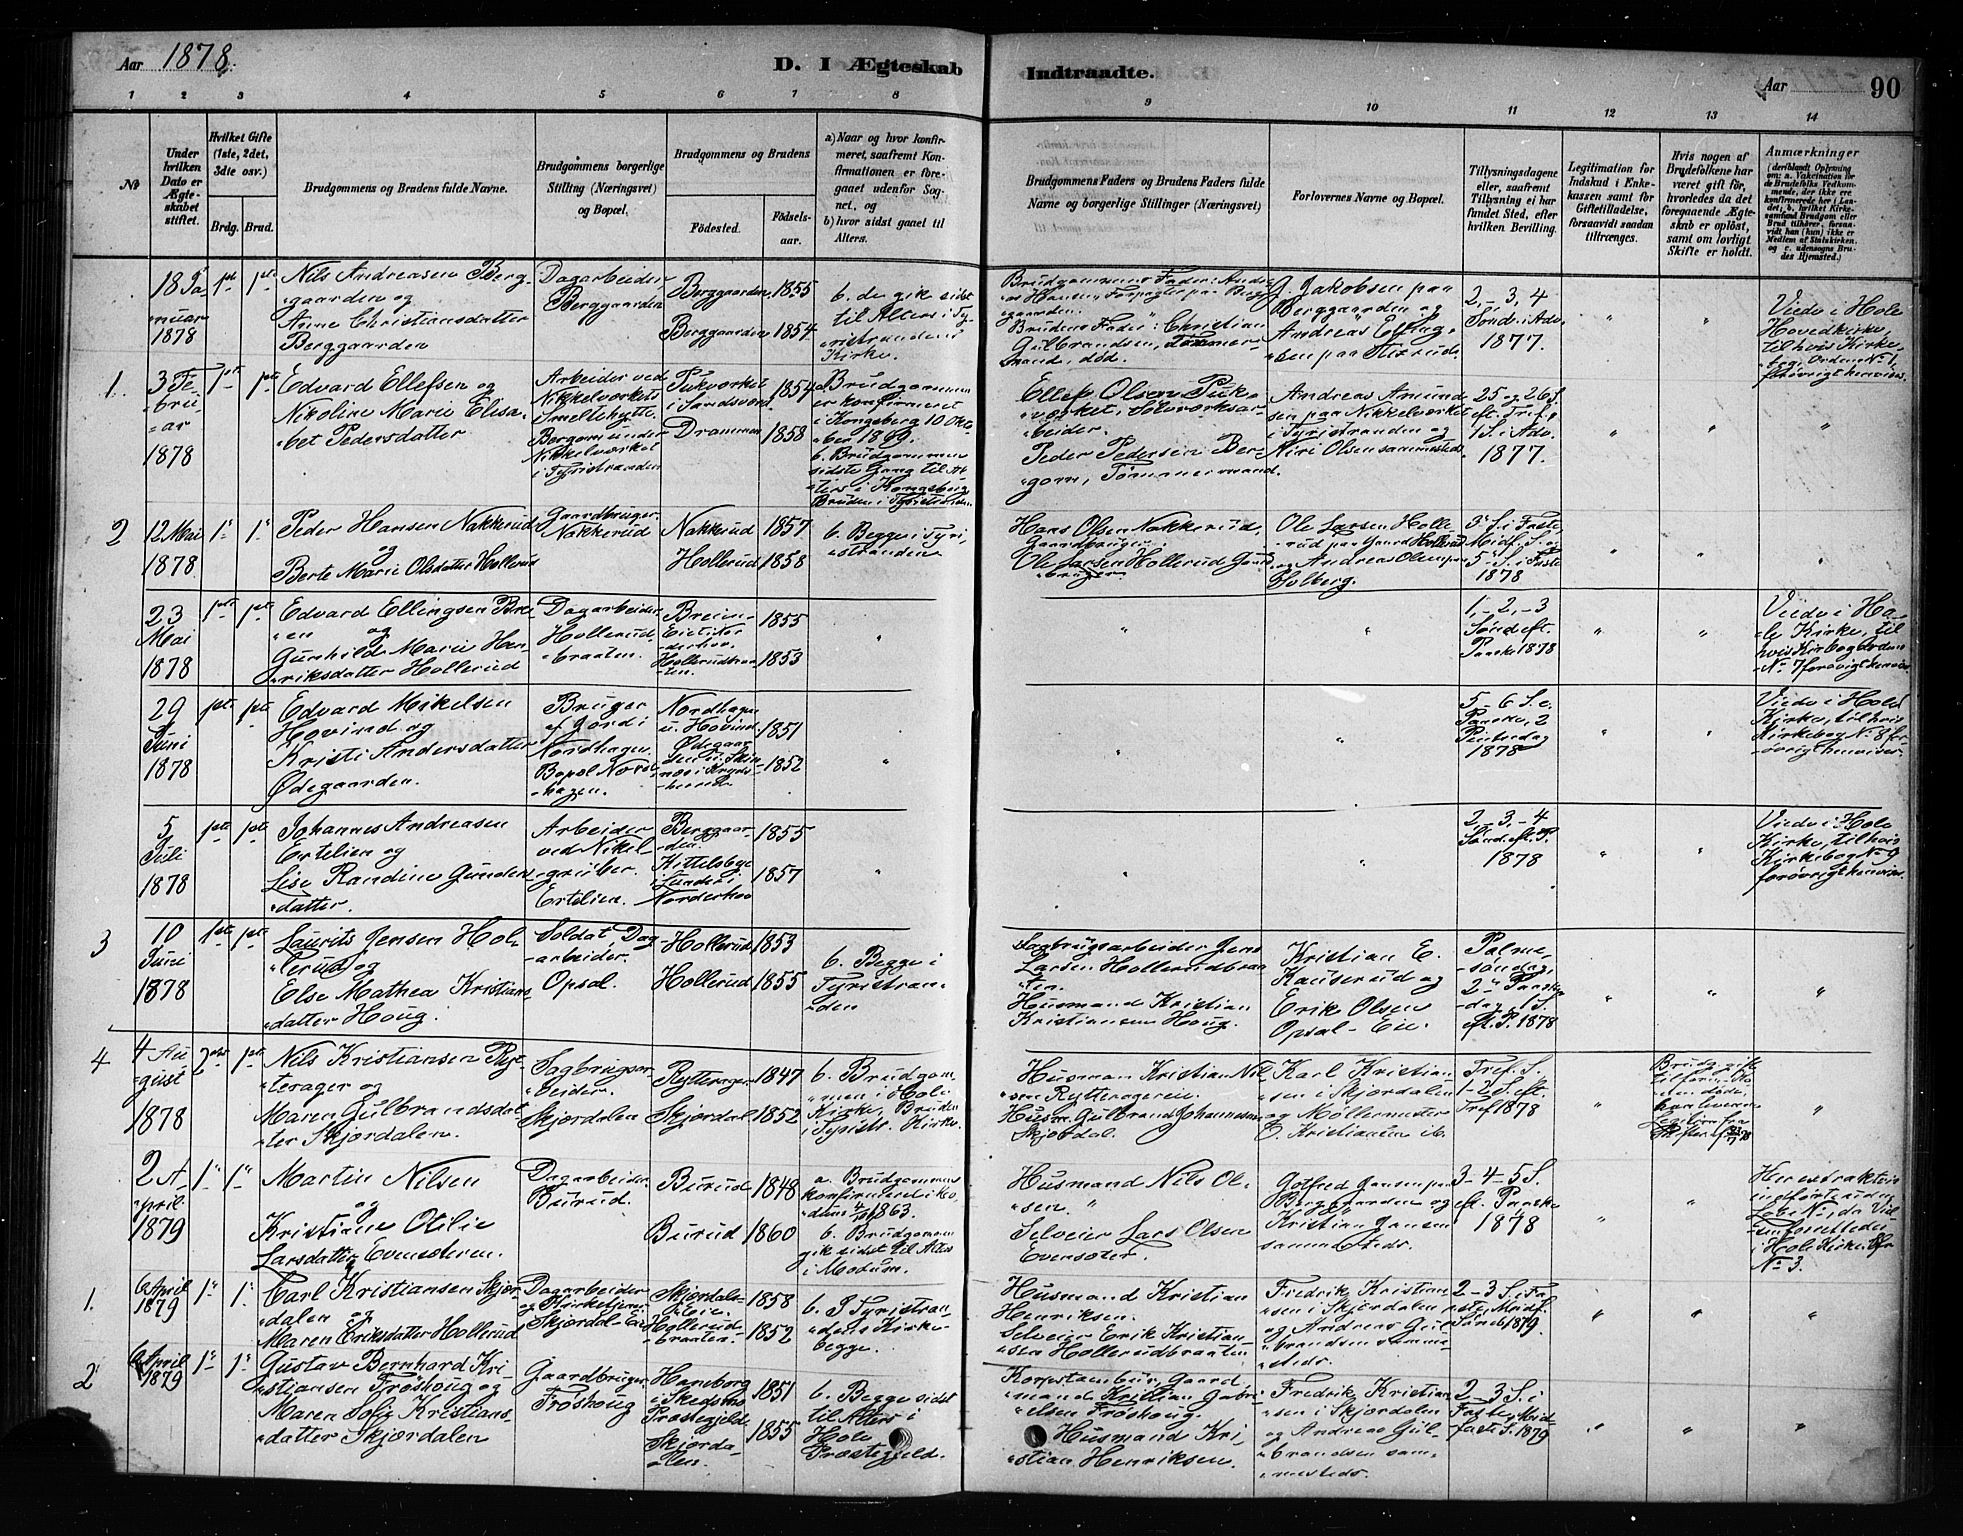 Aar 1878.
D. I Ægteskab Indtraadte.
Aar
90
1 2 3 4 5 6 7 8 9 10 11 12 13 14
No
Under hvilken Dato er Ægteskabet stiftet.
Hvilket Gifte (1ste, 2det, 3die osv.)
Brdg. Brud.
Brudgommens og Brudens fulde Navne.
Brudgommens borgerlige Stilling (Næringsvei) og Bopæl.
Brudgommens og Brudens
Fødested.
Fødselsaar.
a) Naar og hvor konfirmeret, saafremt Konfirmationen er foregaaet udenfor Sognet, og
b) hvor sidst gaaet til Alters.
Brudgommens Faders og Brudens Faders fulde Navne og borgerlige Stillinger (Næringsvei)
Forlovernes Navne og Bopæl.
Tillysningsdagene eller, saafremt Tillysning ei har fundet Sted, efter hvilken Bevilling.
Legitimation for Indskud i Enkekassen samt for Giftetilladelse, forsaavidt saadan tiltrænges.
Hvis nogen af Brudefolkene har været gift før, hvorledes da det foregaaende Ægteskab er opløst, samt om lovligt Skifte er holdt.
Anmærkninger
(deriblandt Oplysning om: a. Vakcination for de Brudefolks Vedkommende, der ikke ere konfirmerede her i Landet; b. hvilket Kirkesamfund Brudgom eller Brud tilhører, forsaavidt han (hun) ikke er Medlem af Statskirken, og c. udensogns Brudes Hjemsted.)
18 Januar 1878
1ste 1ste
Nils Andreasen Berggaarden og
Anne Christiansdatter Berggaarden
Dagarbeider Berggaarden
Berggaarden 1855
Berggaarden 1854
b. de gik sidst til Alters i Tyristrandens Kirke.
Brudgommens Fader: Andreas Hansen, Forpagter paa Berggaarden.
Brudens Fader: Christian Gulbrandsen, Tømmermand, død.
G. Jakobsen paa Berggaarden og Andreas Ellingsen paa
2,-3,4 Sønd. i Adv. 1877.
Viede i Hole Hovedkirke, til hvis Kirkebog, Orden No 1, forøvrigt henvises.
1. 3 Februar 1878
1ste 1ste
Edvard Ellefsen og
Nikoline Marie Elisabet Pedersdatter
Arbeider ved Nikkelverkets Smeltehytte. Bergom under Nikkelverket i Tyristranden
Pukverket i Sandsvær 1854
Drammen 1858
a. Brudgommen er konfirmeret i Kongsberg 10 Oktober 1869.
b. Brudgommen sidste Gang til Alters i Kongsberg Bruden i Tyristranden.
Ellef Olsen Pukverket, Sølvverksarbeider.
Peder Pedersen Bergom, Tømmermand.
Andreas Amundsen paa Nikkelverket i Tyristranden og Niri Olsen sammesteds.
25 og 26 S. eft. Tref. & 1 S. i Adv. 1877.
2 12 Mai 1878
1" 1"
Peder Hansen Nakkerud og
Berte Marie Olsdatter Hollerud
Gaardbruger. Nakkerud
Nakkerud 1857
Hollerud 1858
b. Begge i Tyristranden
Hans Olsen Nakkerud, Gaardbruger.
Ole Larsen Hollerud Gaardbruger
Ole Larsen Hollerud paa Gaard Hollerud og Andreas Olsen paa Holberg.
3" S. i Faste Midf. S. & 5" S. i Faste 1878
23 Mai 1878
1ste 1ste
Edvard Ellingsen Breien og
Gunhild Marie Henriksdatter Hollerud
Dagarbeider. Hollerudbraaten.
Breien Eie i Norderhov. 1855
Hollerudbraaten. 1853
1,-2,-3 Sønd eft. Paaske 1878
Viede i Hole Kirke, til hvis Kirkebog Orden No 7 forøvrigt henvises
29 Juni 1878
1ste 1ste
Edvard Mikelsen Hovind og
Kristi Andersdatter Ødegaarden.
Bruger af Jord i Nordhagen. Bopæl Nordhagen.
Nordhagen u. Hovind 1851
Ødegaarden 1852
5-6 S. e. Paaske, 2 Pintsedag 1878
Viede i Hole Kirke, til hvis Kirkebog No 8 forøvrigt henvises
5 Juli 1878
1ste 1ste
Johannes Andreasen Ertelien og
Lise Randine Gundersdatter.
Arbeider ved Nikelgruber. Ertelien.
Berggaarden. 1855
Kittelsbye i Lunder i Norderhov 1857
2-3,-4 Sønd. eft. P. 1878
Viede i Hole Kirke, til hvis Kirkebog No 9 forøvrigt henvises.
3 10 Juni 1878
1ste 1ste
Laurits Jensen Hollerud og
Else Mathea Kristiansdatter Houg.
Soldat, Dagarbeider. Opsal.
Hollerud 1853
Hollerud 1855
b. Begge i Tyristranden
Sagbrugsarbeider Jens Larsen Hollerudbraaten.
Husmand Kristian Kristiansen Houg.
Kristian E. Kauserud og Erik Olsen Opsal-Eie.
Palmesøndag, 2" Paaskedag, 1 S. eft. P. 1878
4 4 August 1878
2det 1ste
Nils Kristiansen Rytterager og
Maren Gulbrandsdatter Skjordalen.
Sagbrugsarbeider. Skjordalen
Rytterager 1847
Skjordal 1852
b. Brudgommen i Hole Kirke, Bruden i Tyristr. Kirke.
Husman Kristian Nilsen Rytterageren.
Husm. Gulbrand Johannesen Skjordal.
Karl Kristiansen i Skjordalen og Møllermester E. Kristiansen ib.
Tref. S. 1-2 S. eft. Tref 1878
2 April 1879
1" 1"
Martin Nilsen og
Kristiane Otilie Larsdatter Evensøteren.
Dagarbeider. Burud.
Burud 1848
Burud 1860
a. Brudgommen konfirmered i Modum 1863.
b. Brudgommen gik sidst til Alters i Modum.
Husmand Nils Olsen.
Selveier Lars Olsen Evensøter.
Gotfred Jensen paa Berggaarden og Kristian Jansen sammesteds.
3-4-5 S. ef. Paaske 1878
i Hole Kirke. Cfr No 3.
1. 6 April 1879
1" 1"
Carl Kristiansen Skjordalen og
Maren Eriksdatter Hollerud
Dagarbeider og Kirketjener Skjordal-Eie
Skjordals-Eie 1858
Hollerudbraaten 1852
b. I Tyristrandens Kirke begge.
Husmand Kristian Henriksen.
Selveier Erik Kristiansen Hollerudbraaten
Fredrik Kristiansen i Skjordalen og Andreas Gulbrandsen sammesteds.
2-3 S. i Faste, Midf. Sønd. 1879.
2 6 April 1879
1" 1"
Gustav Bernhard Kristiansen Frøshoug og
Maren Sofie Kristiansdatter Skjordalen
Gaardbruger Frøshoug
Homborg i Skedsmo Præstegjeld 1851
Skjordalen. 1855
b. Begge sidst til Alters i Hole Præstegjeld.
Gaardmand Kristian Gabrielsen Frøshoug.
Husmand Kristian Henriksen.
Fredrik Kristiansen i Skjordalen og Andreas Gulbrandsen sammesteds.
2-3 S. i Faste, Midfaste S. 1879